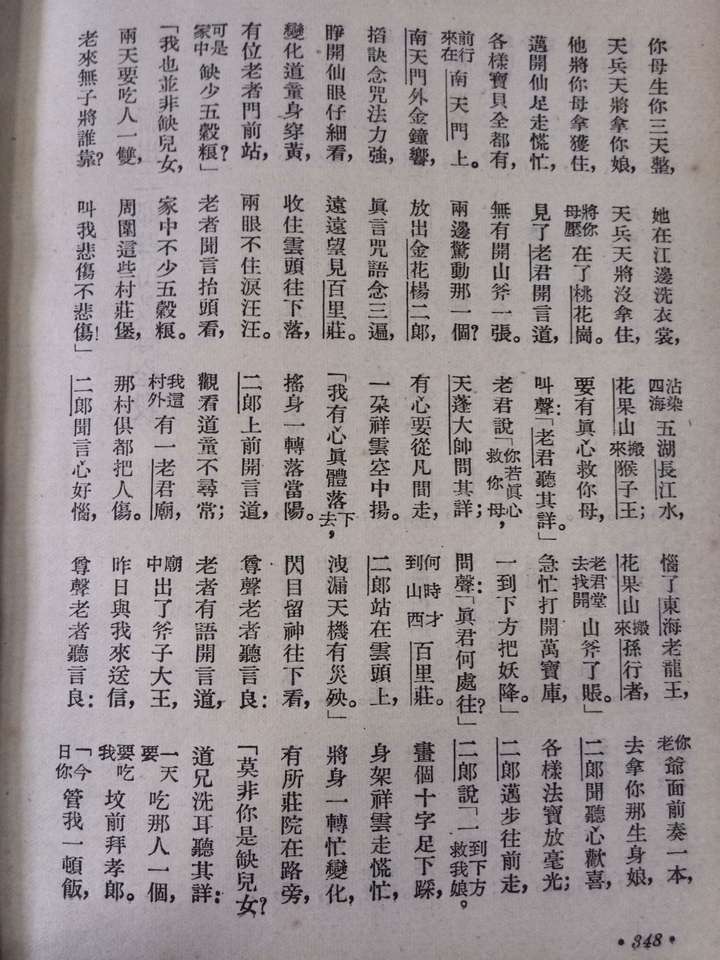 你母生你三天整，她在江邊洗衣裳，沾染四海五湖長江水，惱了東海老龍王，你老爺面前奏一本，
天兵天將拿你娘，天兵天將沒拿住，花果山搬來猴子王；花果山搬來孫行者，去拿你那生身娘，
他將你母拿獲住，將你母壓在了桃花崗。要有眞心救你母，老君堂去找開山斧了賬。」二郎聞聽心歡喜，
邁開仙足走慌忙，見了老君開言道，叫聲：「老君聽其詳。」急忙打開萬寶庫，各樣法寶放毫光；
各樣寶貝全都有，無有開山斧一張。老君說「你若眞心救你母，一到下方把妖降。」二郎邁步往前走，
前行來在南天門上。兩邊驚動那一個？天蓬大帥問其詳；問聲：「眞君何處往？」二郎說「一到下方救我娘。」
南天門外金鐘響，放出金花楊二郎，有心要從凡間走，何時才到山西百里莊。畫個十字足下踩，
掐訣念咒法力強，眞言咒語念三遍，一朶祥雲空中揚。二郎站在雲頭上，身架祥雲走慌忙，
睜開仙眼仔細看，遠遠望見百里莊。「我有心眞體落下去，洩漏天機有災殃。」將身一轉忙變化，
變化道童身穿黃，收住雲頭往下落，搖身一轉落當陽。閃目留神往下看，有所莊院在路旁，
有位老者門前站，兩眼不住淚汪汪。二郎上前開言道，尊聲老者聽言良：「莫非你是缺兒女？
可是家中缺少五穀糧？」老者聞言抬頭看，觀看道童不尋常；老者有語開言道，道兄洗耳聽其詳：
「我也並非缺兒女，家中不少五穀糧。我這村外有一老君廟，廟中出了斧子大王，一天要吃那人一個，
兩天要吃人一雙，周圍這些村莊堡，那村俱都把人傷。昨日與我來送信，要吃我墳前拜孝郎。
老來無子將誰靠？叫我悲傷不悲傷！」二郎聞言心好惱，尊聲老者聽言良：「今日你管我一頓飯，
•348•